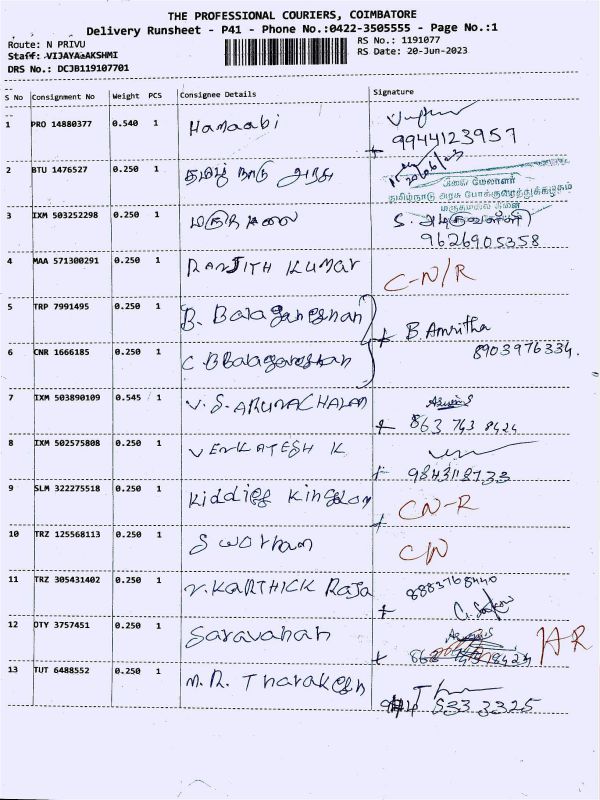 THE PROFESSIONAL COURIERS, COIMBATORE
Delivery Runsheet - P41 - Phone No.:0422-3505555 - Page No.:1
Route: N PRIVU
RS No.: 1191077
Staff: VIJAYALAKSHMI
RS Date: 20-Jun-2023
DRS No.: DCJB119107701
S No Consignment No Weight PCS Consignee Details Signature
1 PRO 14880377 0.540 1 Hamaabi
9944123957
2 BTU 1476527 0.250 1 தமிழ் நாடு அரசு
20/6/23
கிளை மேலாளர்
தமிழ்நாடு அரசு போக்குவரத்துக்கழகம்
3 IXM 503252298 0.250 1 மருதமலை
9626905358
4 MAA 571300291 0.250 1 RANJITH KUMAR C-N/R
5 TRP 7991495 0.250 1 B. Balaganeshan
B. Amritha
6 CNR 1666185 0.250 1 C B Balaganeshan 8903976334.
7 IXM 503890109 0.545 1 V.S. ARUNACHALAM
863 763 8424
8 IXM 502575808 0.250 1 VENKATESH K
9 SLM 322275518 0.250 1 Kiddies Kingdom CN-R
10 TRZ 125568113 0.250 1 CN
11 TRZ 305431402 0.250 1 V.KARTHICK RAJA 8883768440
12 OTY 3757451 0.250 1 Saravanan
13 TUT 6488552 0.250 1 M.R. Tharakesh
533 3325